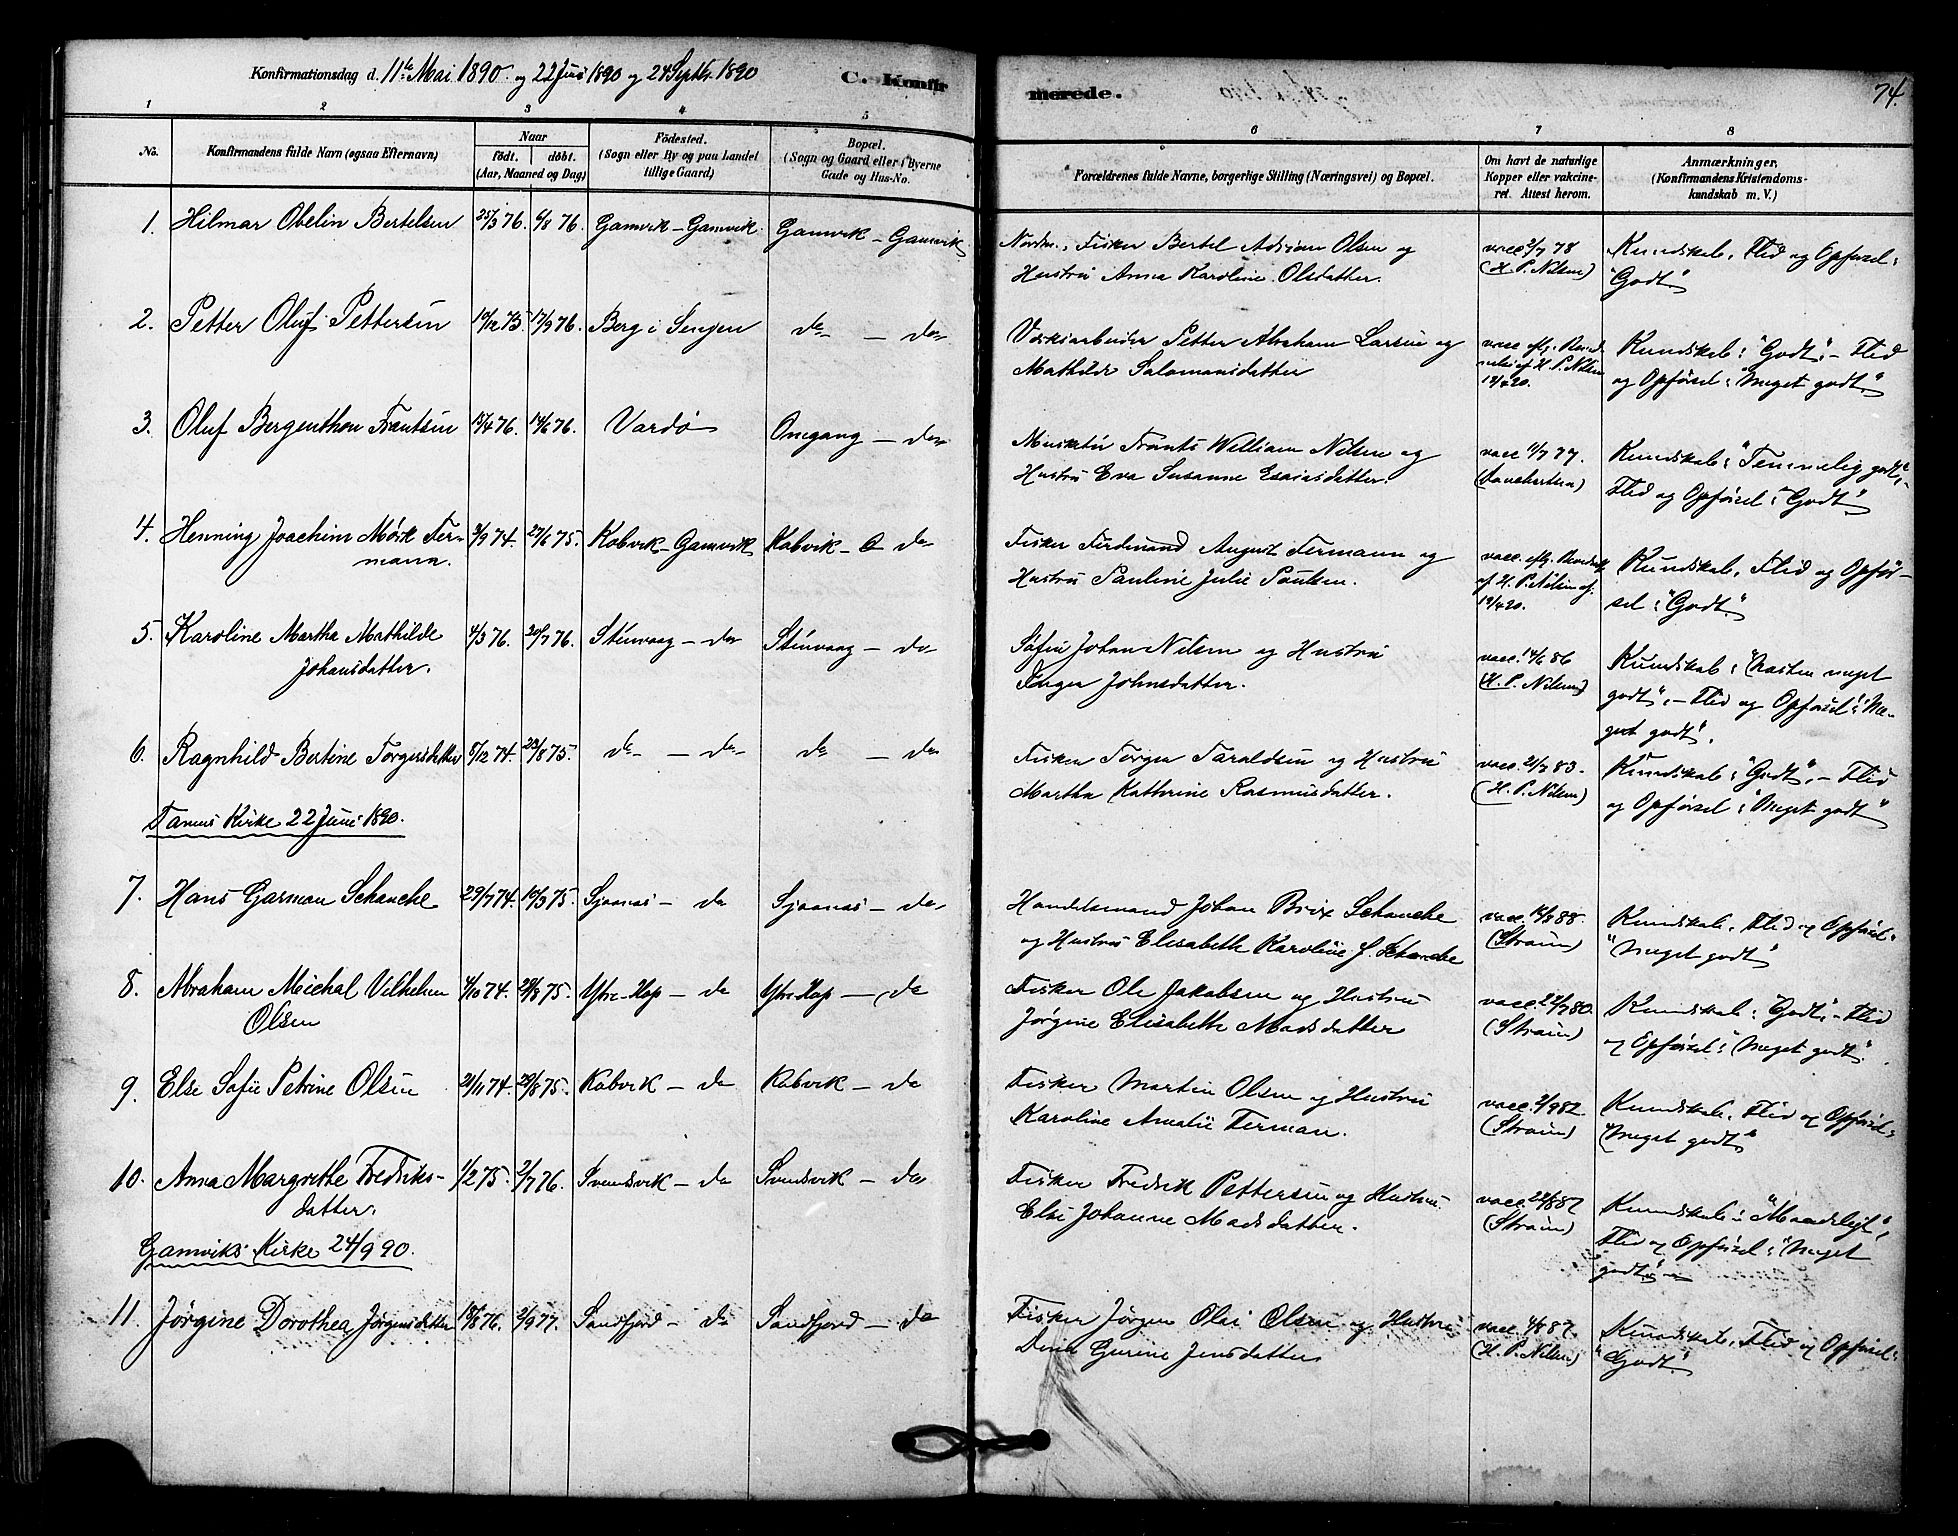 Konfirmationsdag d. 11te Mai 1890. og 22 Juni 1890 og 24 Septbr. 1890
C. Konfir
merede.
74.
1 2 3 4 5 6 7 8
No.
Konfirmandens fulde Navn (ogsaa Efternavn)
Naar
födt. döbt.
(Aar, Maaned og Dag)
Födested.
(Sogn eller By og paa Landet
tillige Gaard)
Bopæl.
(Sogn og Gaard eller i Byerne
Gade og Hus-No.
Forældrenes fulde Navne, borgerlige Stilling (Næringsvei) og Bopæl.
Om havt de naturlige
Kopper eller vakcine-
ret. Attest herom.
Anmærkninger,
(Konfirmandens Kristendoms-
kundskab m. V.)
1. Hilmar Obelin Bertelsen 25/3 76. 6/8 76. Gamvik - Gamvik. Gamvik - Gamvik Fisker Bertel Adrian Olsen og vacc. 2/7 78 Kundskab, Flid og Opførsel:
Hustru Anna Karoline Olsdatter. (H. P. Nilsen) "Godt"
2. Petter Oluf Pettersen 19/12 75. 17/9 76. Berg i Senjen do - do Petter Abraham Larsen og vacc. Kundskab: "Godt", - Flid
Mathilde Salomonsdatter af H. P. Nilsen og Opførsel: "Meget godt"
3. Oluf Bergenthon Frantsen 15/4 76. 14/6 76. Vardø Omgang - do Frants William Nilsen og vacc. 11/7 77. Kundskab: "Temmelig godt",
Hustru Eva Susanne Esaiasdatter. Flid og Opførsel: "Godt"
4. Henning Joachim Mørk Fer- 3/9 74. 27/6 75. Kobvik - Gamvik Kobvik - do Fisker Ferdinand August Fermann og vacc. Kundskab, Flid og Opfør-
mann. Hustru Pauline Julie Poulsen. af H. P. Nilsen sel: "Godt"
5. Karoline Martha Mathilde 4/3 76. 20/7 76. Stenvaag - do Stenvaag - do Johan Nilsen og Hustru vacc. 14/6 86 Kundskab: "Næsten meget
Johansdatter. Inger Johnsdatter. (H. P. Nilsen) godt", - Flid og Opførsel: "Me-
get godt".
6. Ragnhild Bertine Torgersdatter 5/12 74. 22/8 75. do - do do - do Fisker Torger Taraldsen og Hustru vacc. 21/7 83. Kundskab: "Godt", - Flid
Martha Kathrine Rasmusdatter. (H. P. Nilsen) og Opførsel: "Meget godt"
Tanens Kirke 22 Juni 1890.
7. Hans Garman Schanche 29/7 74. 19/3 75. Sjaanæs - do Sjaanæs - do Handelsmand Johan Brix Schanche vacc. 14/8 88. Kundskab, Flid og Opførsel:
og Hustru Elisabeth Karoline J. Schanche (Straum) "Meget godt"
8. Abraham Michal Vilhelm 4/10 74. 29/8 75. Ytre-Hop - do Ytre-Hop - do Fisker Ole Jakobsen og Hustru vacc. 22/7 80. Kundskab: "Godt", - Flid
Olsen Jørgine Elisabeth Madsdatter (Straum) og Opførsel: "Meget godt".
9. Else Sofie Petrine Olsen 21/11 74. 29/8 75. Kobvik - do Kobvik - do Fisker Martin Olsen og Hustru vacc. 2/9 82 Kundskab, Flid og Opførsel:
Karoline Amalie Ferman. (Straum) "Meget godt"
10. Anna Margrethe Fredriks- 1/2 75. 2/7 76. Svendsvik - do Svendsvik - do Fisker Fredrik Pettersen og Hustru vacc. 22/8 87 Kundskab: "Maadelig",
datter. Else Johanne Madsdatter. (Straum) Flid og Opførsel: "Meget
godt". -
Gamviks Kirke 24/9 90.
11. Jørgine Dorothea Jørgensdatter 18/8 76. 2/9 77. Sandfjord - do Sandfjord - do Fisker Jørgen Olai Olsen og Hustru vacc. 4/8 87. Kundskab, Flid og Opførsel:
Gurine Jensdatter (H. P. Nilsen) "Godt".